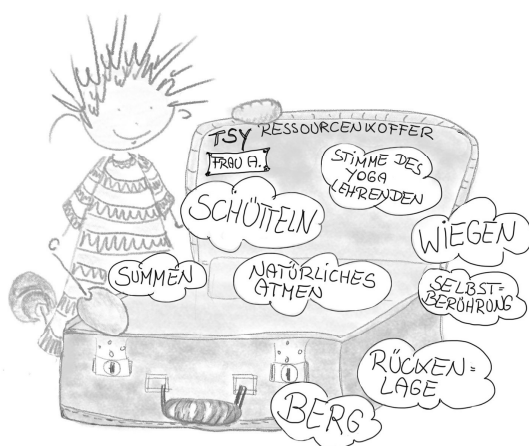 TSY RESSOURCENKOFFER
FRAU A.
STIMME DES
YOGA
LEHRENDEN
SCHÜTTELN
WIEGEN
SUMMEN
NATÜRLICHES
ATMEN
SELBST=
BERÜHRUNG
RÜCKEN=
LAGE
BERG